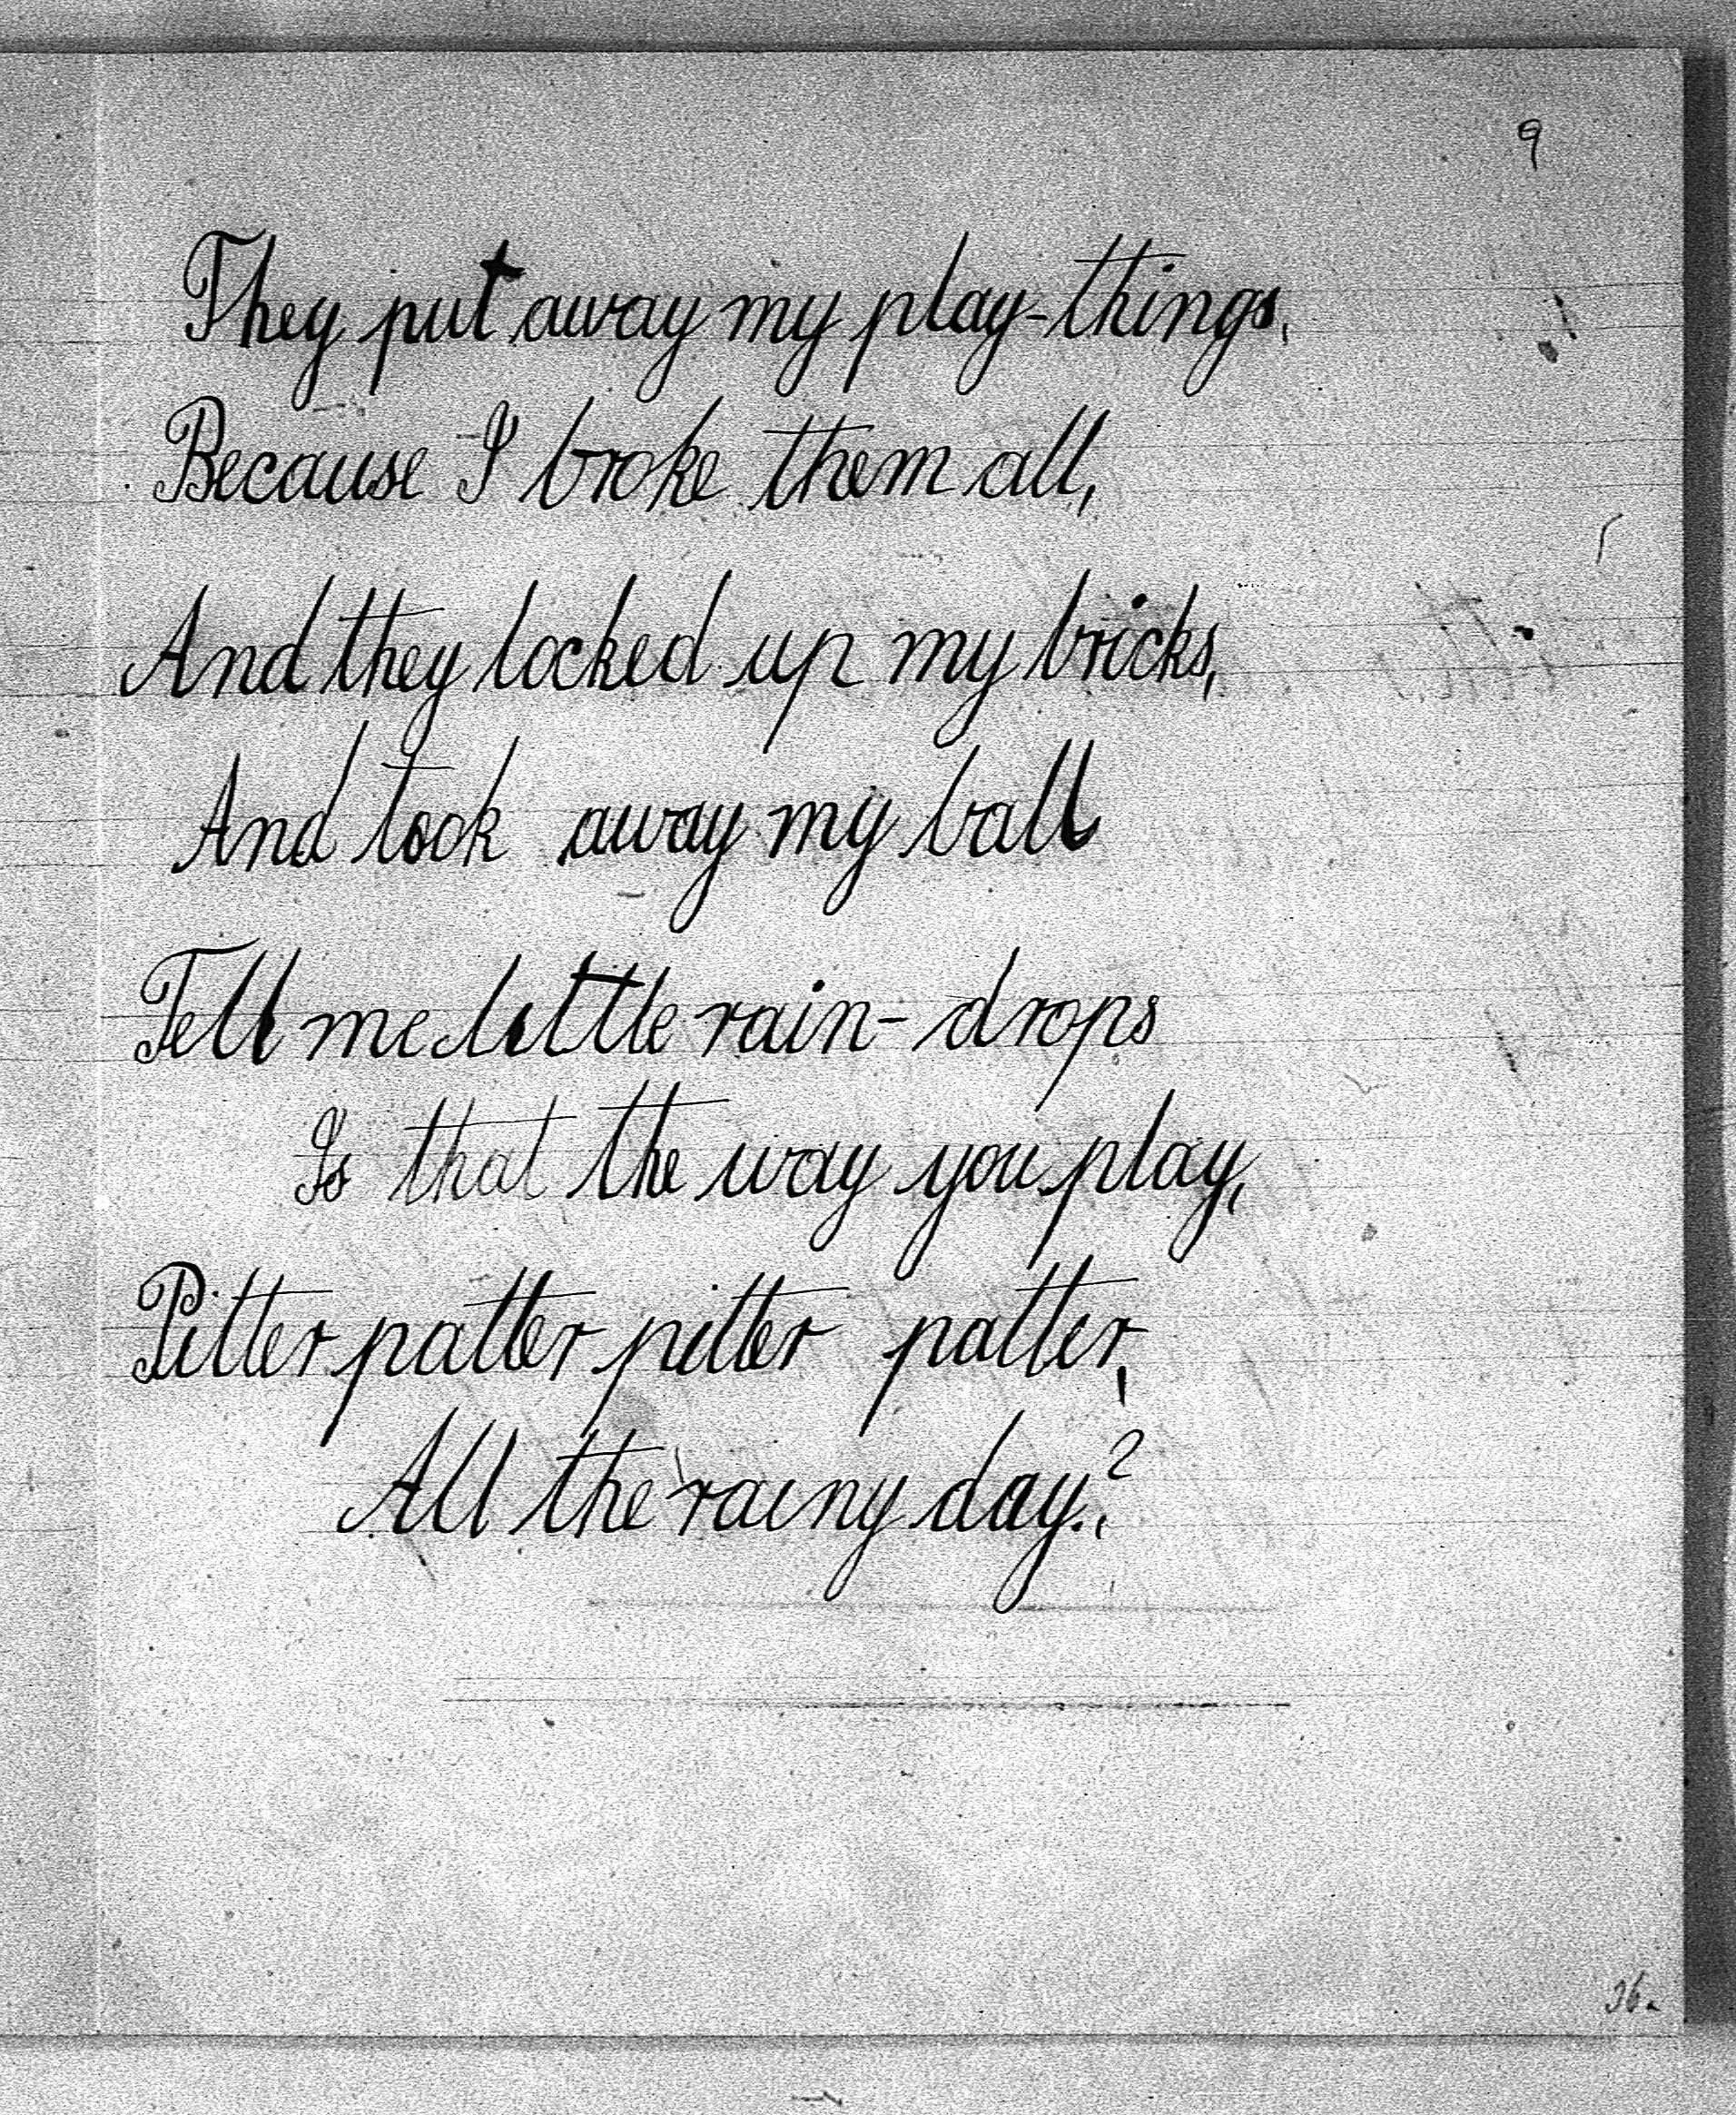 9
They put away my play-things,
Because I broke them all,
And they locked up my bricks,
And took away my ball
Tell me little rain-drops
Is that the way you play,
Pitter patter pitter patter,
All the rainy day.?